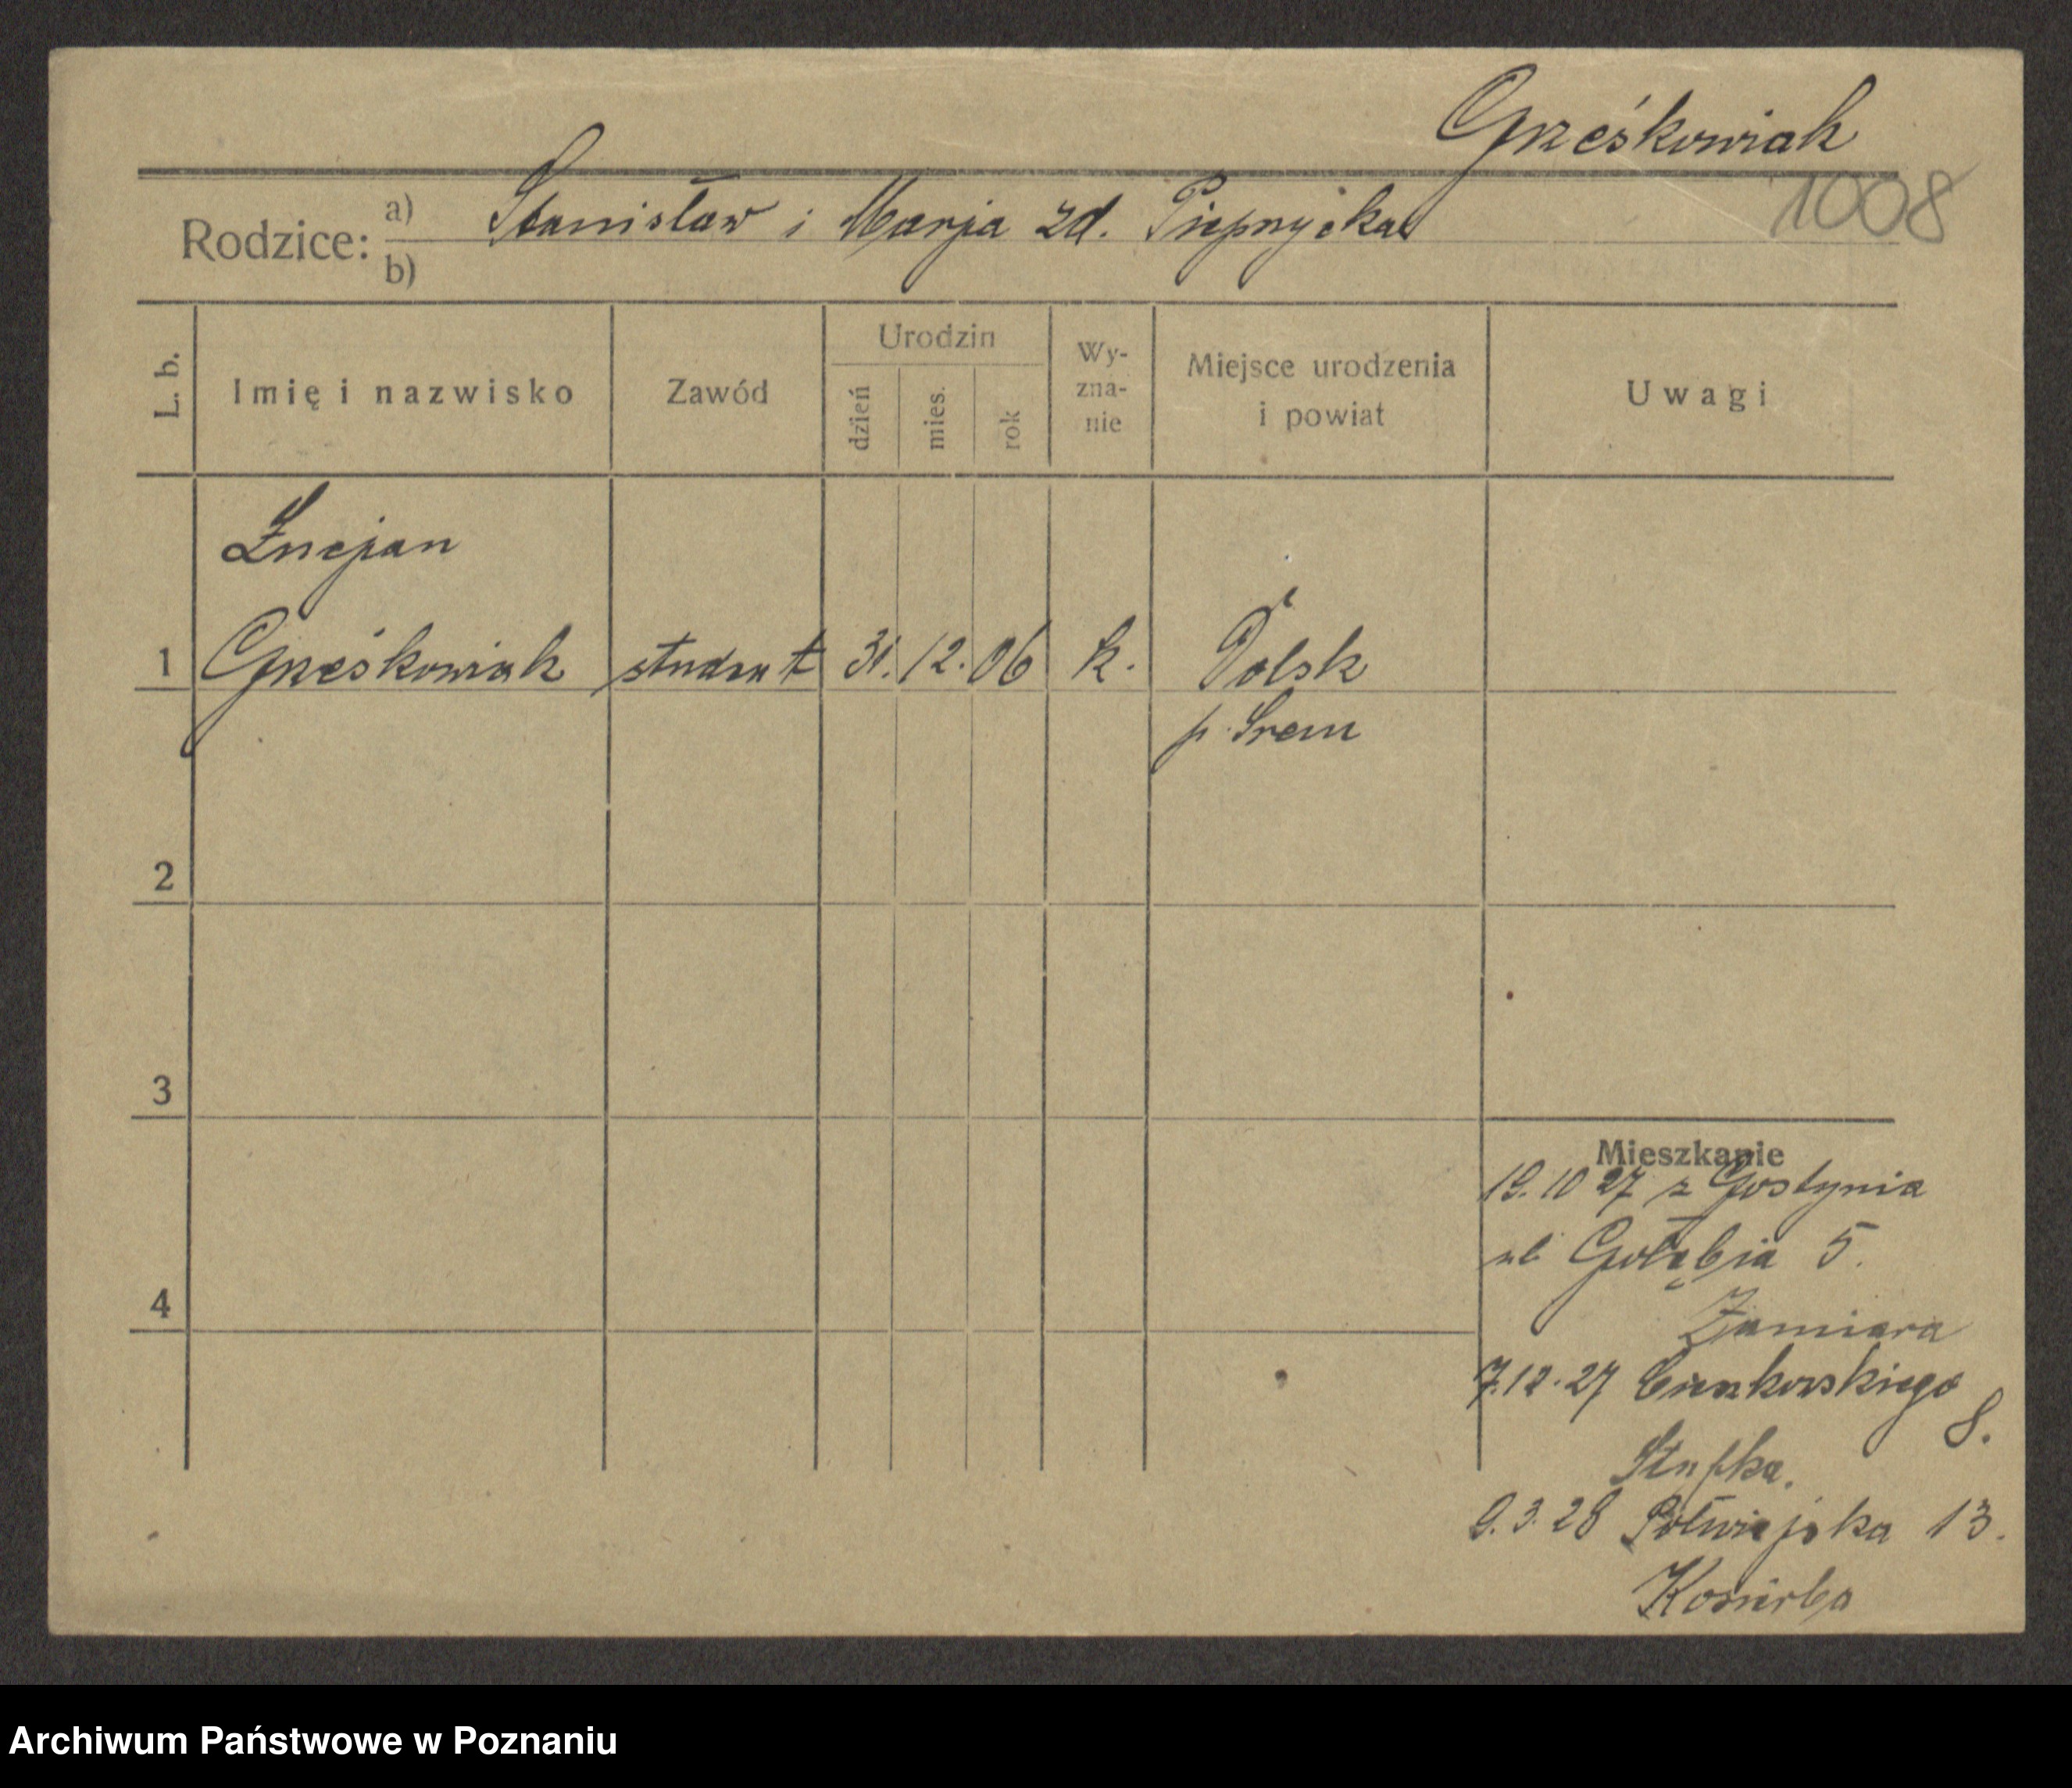 Grześkowiak
1008
Rodzice: a) Stanisław i Marja zd.
b)
L. b.
Imię i nazwisko
Zawód
Urodzin
dzień
mies.
rok
Wy-
zna-
nie
Miejsce urodzenia
i powiat
Uwagi
Lucjan
1 Grześkowiak student 31. 12. 06 k. Dolsk
p. Śrem
2
3
Mieszkanie
19. 10 27 z Gostynia
ul Gołębia 5.
4
Zamiara
7.12.27
8.
9. 3. 28 Półwiejska 13.
Archiwum Państwowe w Poznaniu